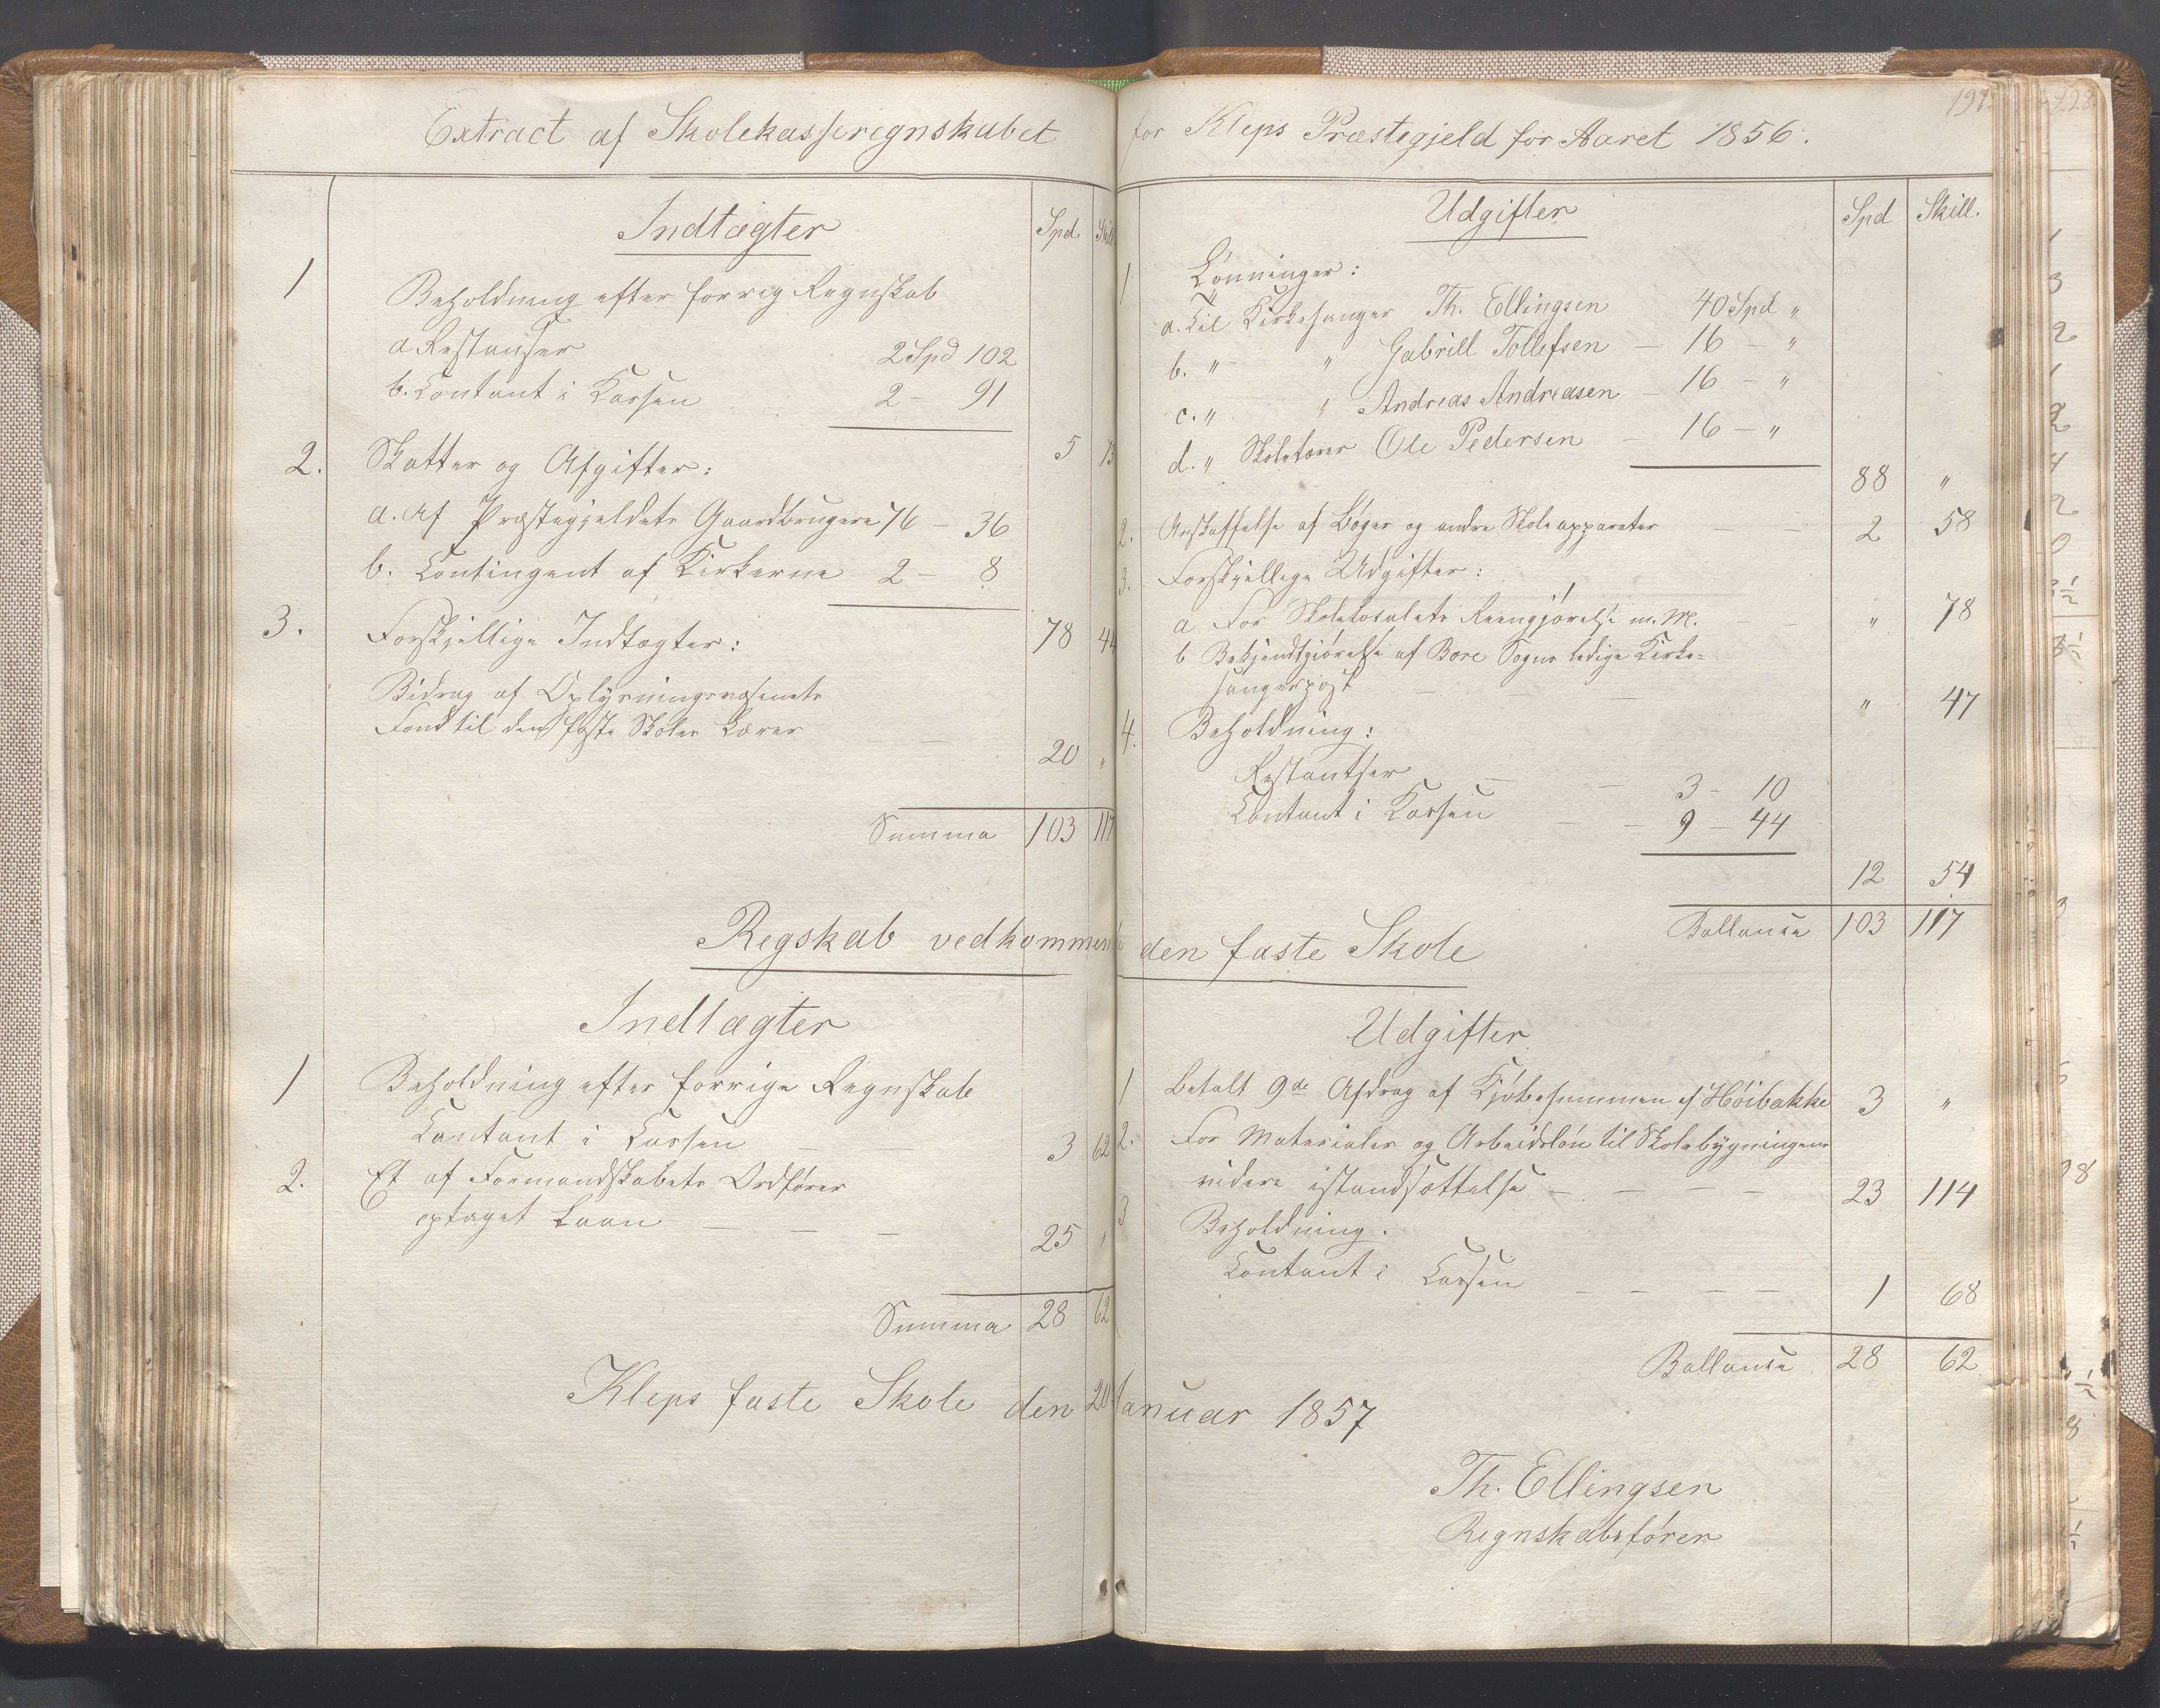 Extract af Skolekasseregnskabet for Kleps Præstegjeld for Aaret 1856.
197
Indtægter
Spd. Skill
1 Beholdning efter forrig Regnskab
a Restanser 2 Spd 102
b. Contant i Kassen 2 - 91
5 73
2. Skatter og Afgifter:
a. Af Præstegjeldets Gaardbrugere 76 - 36
b. Contingent af Kirkerne 2 - 8
78 44
3. Forskjellige Indtægter:
Bidrag af Oplysningsvæsenets
Fond til den faste Skoles Lærer 20 "
Summa 103 117
Udgifter
Spd Skill.
1 Lønninger:
a. Til Kirkesanger Th. Ellingsen 40 Spd "
b. " " Gabrill Tollefsen - 16 - "
c. " " Andreas Andreasen - 16 - "
d. " Skolelærer Ole Pedersen - 16 - "
88 "
2. Anskaffelse af Bøger og andre Skoleapparater - - 2 58
3. Forskjellige Udgifter:
a For Skolelokalets Reengjørelse m. M. - - " 78
b Bekjendtgjørelse af Bore Sogns ledige Kirke=
sangerpost - - - " 47
4. Beholdning:
Restantser - - 3 - 10
Contant i Kassen - - 9 - 44
12 54
Ballance 103 117
Regskab vedkommende den faste Skole
Indtægter
1 Beholdning efter forrige Regnskab
Contant i Cassen - - 3 62
2. Et af Formandskabets Ordfører
optaget Laan - - - 25 "
Summa 28 62
Udgifter
1 Betalt 9de Afdrag af Kjøbesummen af Høibakke 3 "
2. For Materialer og Arbeidsløn til Skolebygningens
videre istandsættelse - - - - 23 114
3 Beholdning.
Contant i Cassen - - - - 1 68
Ballance 28 62
Kleps faste Skole den 20 Januar 1857
Th. Ellingsen
Regnskabsfører